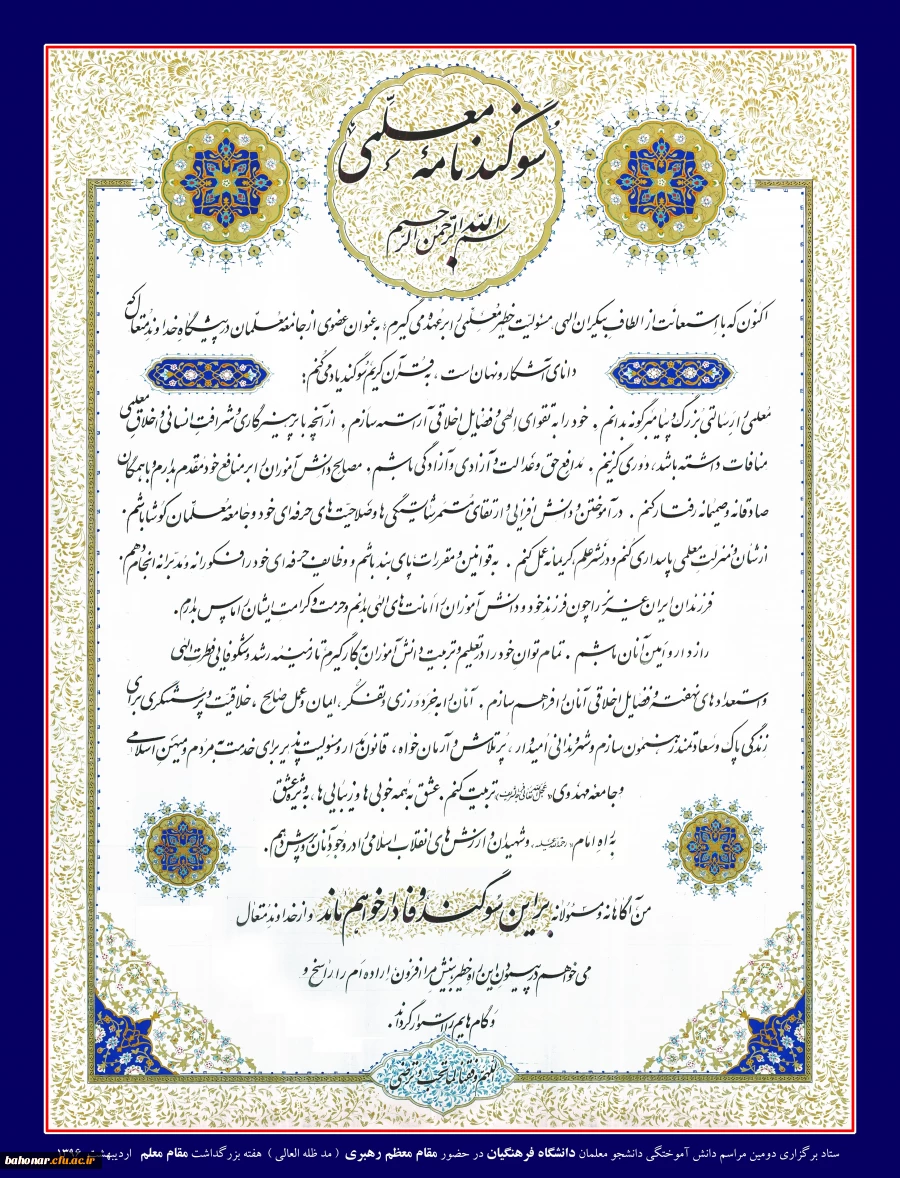 سوگندنامهٔ معلّمی
بسم الله الرحمن الرحیم
اکنون که با استعانت از الطاف بیکران الهی، مسئولیت خطیر معلّمی را بر عهده می گیرم؛ به عنوان عضوی از جامعه معلّمان در پیشگاه خداوند متعال که
دانای آشکار و نهان است، به قرآن کریم سوگند یاد می کنم:
معلمی را رسالتی بزرگ و پیامبرگونه بدانم. خود را به تقوای الهی و فضایل اخلاقی آراسته سازم. از آنچه با پرهیزگاری و شرافت انسانی و اخلاق معلمی
منافات داشته باشد، دوری گزینم. مدافع حق و عدالت و آزادی و آزادگی باشم. مصالح دانش آموزان را بر منافع خود مقدم بدارم و با همگان
صادقانه و صمیمانه رفتار کنم. در آموختن و دانش افزایی و ارتقای مستمر شایستگی ها و صلاحیت های حرفه ای خود و جامعه معلّمان کوشا باشم.
از شان و منزلت معلمی پاسداری کنم و در نشر علم، کریمانه عمل کنم. به قوانین و مقررات پای بند باشم و وظایف حرفه ای خود را فکورانه و مدبرانه انجام دهم.
فرزندان ایران عزیز را چون فرزند خود و دانش آموزان را امانت های الهی بدانم و حرمت و کرامت ایشان را پاس بدارم.
رازدار و امین آنان باشم. تمام توان خود را در تعلیم و تربیت دانش آموزان به کار گیرم تا زمینه رشد و شکوفایی فطرت الهی
و استعدادهای نهفته و فضایل اخلاقی آنان را فراهم سازم. آنان را به خردورزی و تفکر، ایمان و عمل صالح، خلاقیت و پرسشگری برای
زندگی پاک و سعادتمند رهنمون سازم و شهروندانی امیدوار، پرتلاش و آرمان خواه، قانون مدار و مسولیت پذیر برای خدمت به مردم و میهن اسلامی
و جامعه مهدوی تربیت کنم. عشق به همه خوبی ها و زیبایی ها، به ویژه عشق
به راه امام و شهیدان و ارزش های انقلاب اسلامی را در وجود آنان پرورش دهم.
من آگاهانه و مسئولانه بر این سوگند وفادار خواهم ماند و از خداوند متعال
می خواهم در پیمودن این راه خطیر بینش مرا افزون، اراده ام را راسخ و
و گام هایم را استوار گرداند.
اللهم وفقنا لما تحب و ترضی
ستاد برگزاری دومین مراسم دانش آموختگی دانشجو معلمان دانشگاه فرهنگیان در حضور مقام معظم رهبری ( مد ظله العالی ) هفته بزرگداشت مقام معلم اردیبهشت ۱۳۹۶
bahonar.cfu.ac.ir